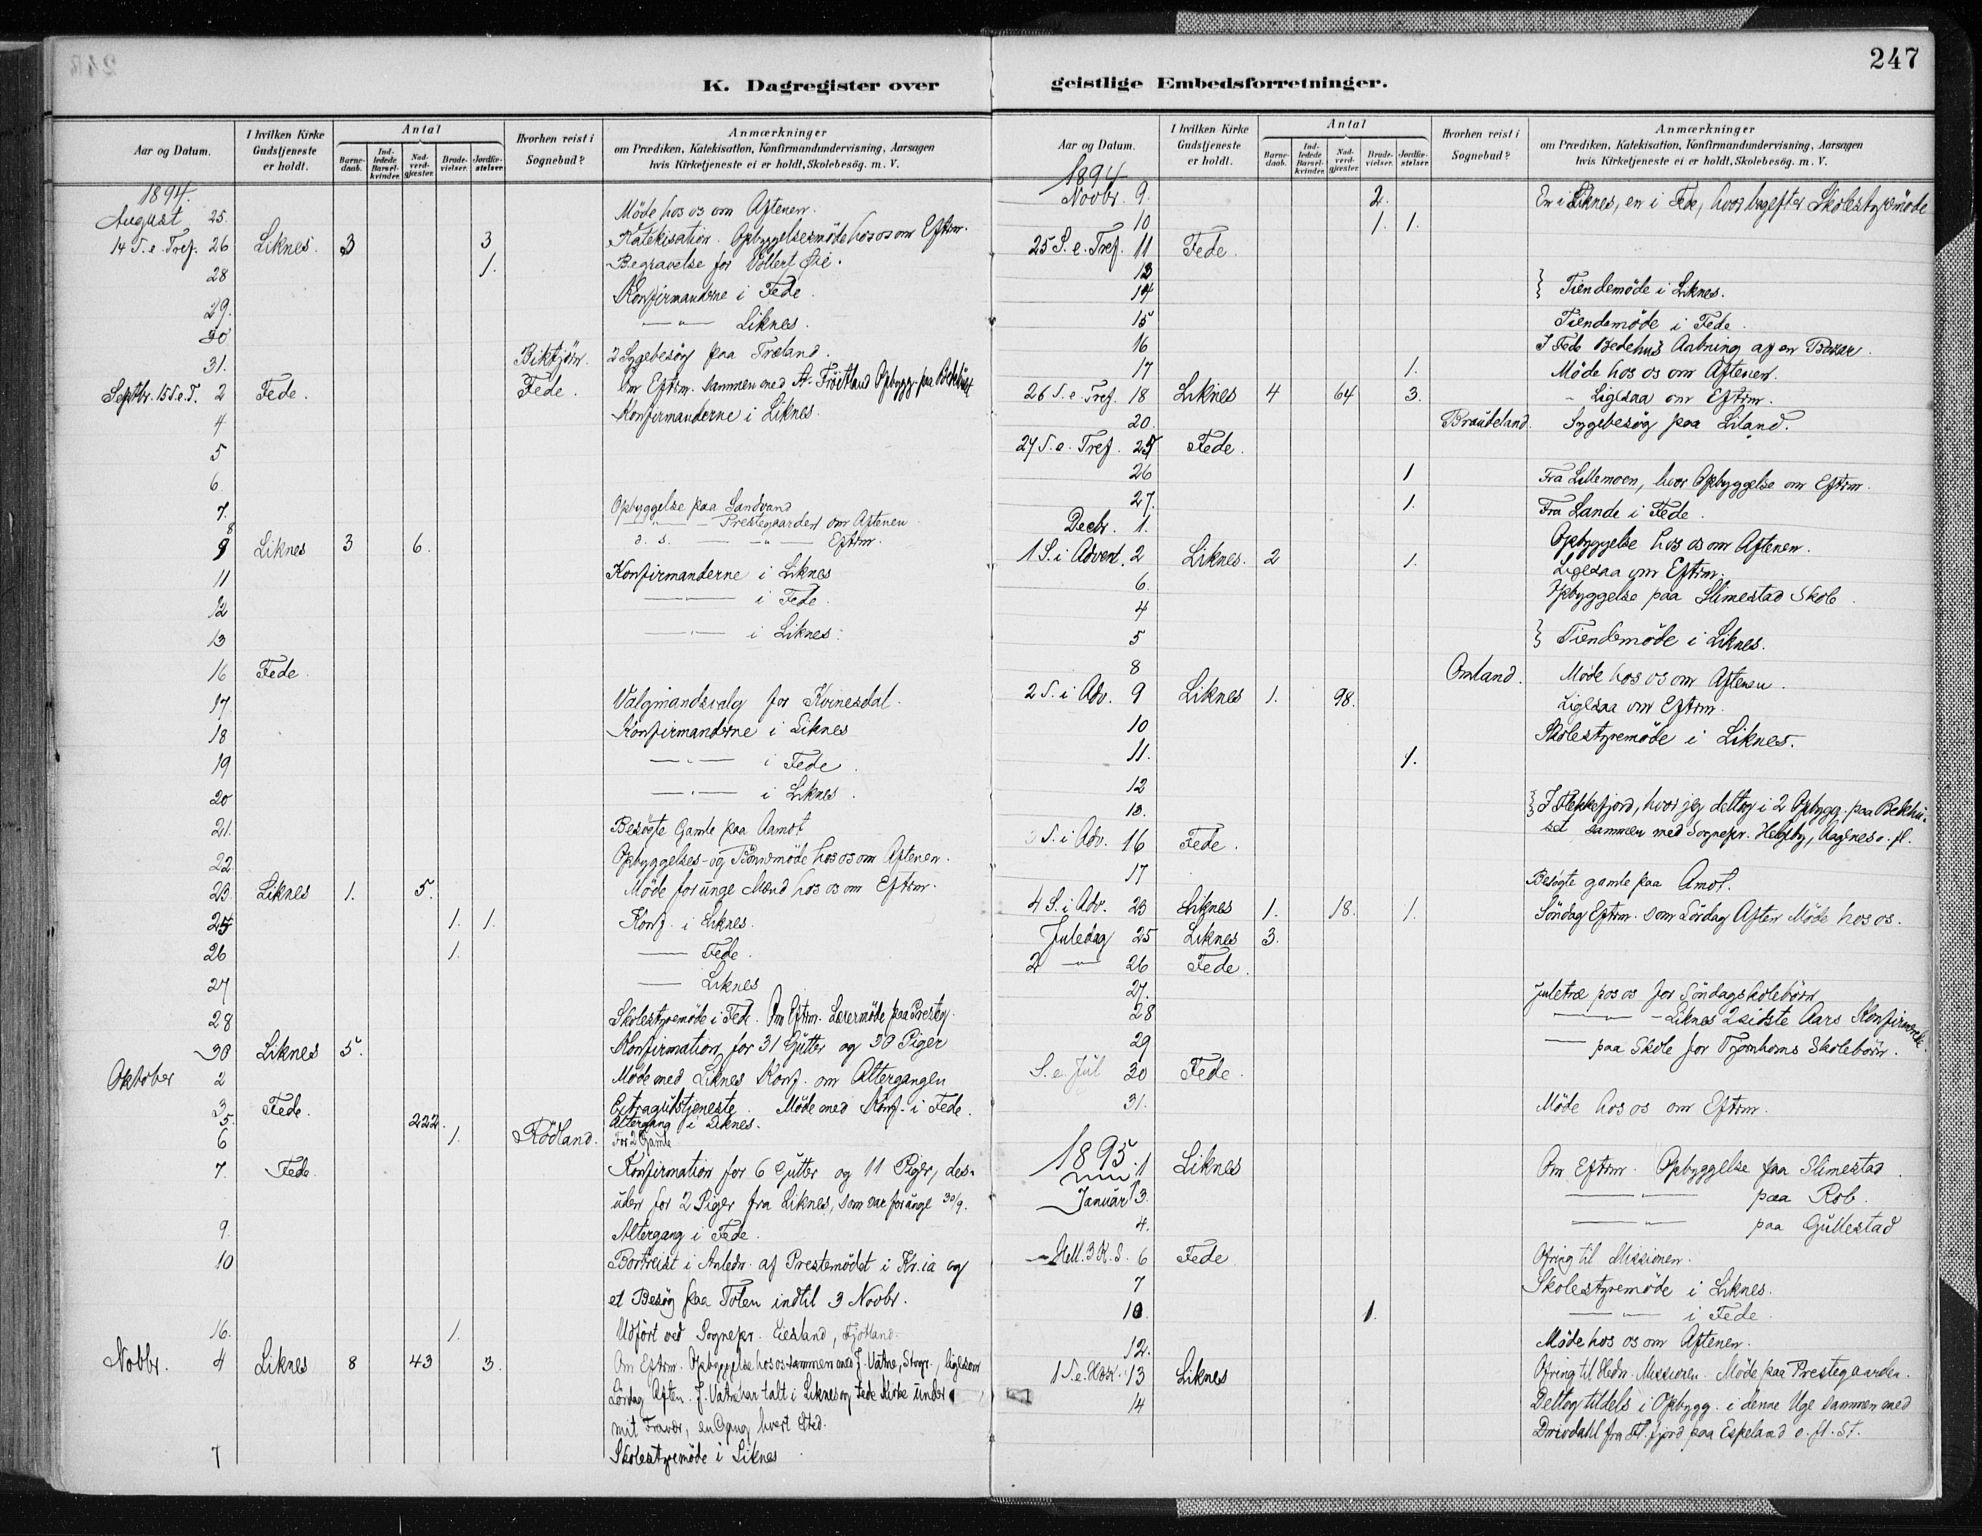 247
K. Dagregister over geistlige Embedsforretninger.
Aar og Datum. | I hvilken Kirke Gudstjeneste er holdt. | Antal | Barnedaab. | Indledede Barselkvinder. | Nadverdgjæster. | Brudevielser. | Jordfæstelser. | Hvorhen reist i Sognebud? | Anmærkninger om Prædiken, Katekisation, Konfirmandundervisning, Aarsagen hvis Kirketjeneste ei er holdt, Skolebesøg. m. V.
1894.
August 25. Møde hos os om Aftenen.
14 S. e. Tref. 26 Liknes. 3 3 Katekisation. Opbyggelsesmøde hos os om Eftrm.
28 1. Begravelse for Vollert Øie.
Konfirmanderne i Fede.
29. — " — Liknes.
30
31. Birktjørn. 2 Sygebesøg paa Træland.
Septbr. 15 S. e. T. 2 Fede. Fede. Om Eftrm. sammen med A. Frøitland Opbygg. paa Bedehuset
4 Konfirmanderne i Liknes.
5
6
7. Opbyggelse paa Sandvand
8 — " — Prestegaarden om Aftenen
9 Liknes 3 6. d. s. — " — Eftrm.
11 Konfirmanderne i Liknes
12 — " — i Fede.
13 — " — i Liknes.
16 Fede.
17 Valgmandsvalg for Kvinesdal.
18 Konfirmanderne i Liknes
19 — " — i Fede.
20 — " — i Liknes.
21. Besøgte Gamle paa Aamot
22 Opbyggelses- og Bønnemøde hos os om Aftenen.
23 Liknes 1. 5. Møde for unge Mænd hos os om Eftrm.
25 1. 1. Konf. i Liknes.
26 1. — Fede.
27 — Liknes
28 Skolestyremøde i Fede. Om Eftrm. Lærermøde paa Presteg.
30 Liknes 5. Konfirmation for 31 Gutter og 30 Piger
Oktober 2 Møde med Liknes Konf. om Altergangen
3 Fede. Extragudstjeneste. Møde med Konf. i Fede.
5. 222. Altergang i Liknes.
6 1. Rødland. For 2 Gamle
7. Fede. Konfirmation for 6 Gutter og 11 Piger, des-
uden for 2 Piger fra Liknes, som var for unge 30/9.
9. Altergang i Fede.
10 Bortreist i Anledn. af Prestemødet i Kr.ia og
et Besøg paa Toten indtil 3 Novbr.
16. 1. Udført ved Sognepr. Eiesland, Fjotland.
Novbr. 4 Liknes 8 43 3. Om Eftrm. Opbyggelse hos os sammen med J. Vatne, Stvgr., ligesom
Lørdag Aften. J. Vatne har talt i Liknes og Fede Kirke under
mit Fravær, en Gang hvert Sted.
7 Skolestyremøde i Liknes
Aar og Datum. | I hvilken Kirke Gudstjeneste er holdt. | Antal | Barnedaab. | Indledede Barselkvinder. | Nadverdgjæster. | Brudevielser. | Jordfæstelser. | Hvorhen reist i Sognebud? | Anmærkninger om Prædiken, Katekisation, Konfirmandundervisning, Aarsagen hvis Kirketjeneste ei er holdt, Skolebesøg. m. V.
1894
Novbr. 9. 2. En i Liknes, en i Fede, hvor bagefter Skolestyremøde
10 1. 1.
25 S. e. Tref. 11 Fede.
13
14 } Tiendemøde i Liknes.
15 Tiendemøde i Fede.
16 I Fede Bedehus Aabning af en Bazar.
17 1. Møde hos os om Aftenen.
26 S. e. Tref. 18 Liknes 4 64 3. - Ligesaa om Eftrm.
20. Braudeland. Sygebesøg paa Liland.
27 S. e. Tref. 25 Fede.
26 1 Fra Lillemoen, hvor Opbyggelse om Eftrm.
27. 1. Fra Lande i Fede.
Decbr. 1. Opbyggelse hos os om Aftenen.
1 S. i Advent. 2 Liknes. 2 1. Ligesaa om Eftrm.
6. Opbyggelse paa Slimestad Skole.
4
5 } Tiendemøde i Liknes.
8 Omland. Møde hos os om Aftenen.
2 S. i Adv. 9 Liknes 1. 98. Ligesaa om Eftrm.
10 Skolestyremøde i Liknes.
11. 1.
12
13. } I Flekkefjord, hvor jeg deltog i 2 Opbygg. paa Bedehu-
set sammen med Sognepr. Heltsby, Aagnes o. fl.
3 S. i Adv. 16 Fede.
17 Besøgte gamle paa Amot.
4 S. i Adv. 23 Liknes 1. 18. 1. Søndag Eftrm. som Lørdag Aften Møde hos os.
Juledag 25 Liknes 3.
2 — " — 26 Fede.
27. Juletræ hos os for Søndagsskolebørn
28 — " — - Liknes 2 sidste Aars Konfirmerede.
29 — paa Skole for Tjomhoms Skolebørn.
S. e. Jul 30 Fede.
31. Møde hos os om Eftrm.
1895.
1 Liknes Om Eftrm. Opbyggelse paa Slimestad
Januar 3. — " — paa Rob.
4. — " — paa Gullestad
Hell. 3 K. S. 6 Fede Ofring til Missionen.
7 Skolestyremøde i Liknes.
10 1. — " — i Fede.
12. Møde hos os om Aftenen.
1 S. e. H3K. 13 Liknes Ofring til Hedn. Missionen. Møde paa Prestegaarden.
14 Deltog tildels i Opbygg. i denne Uge sammen med
Drivdahl fra Fl.fjord paa Espeland o. fl. St.